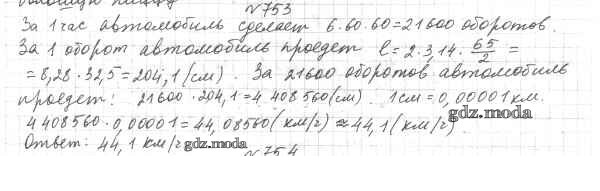 №753
За 1 час автомобиль сделает 6·60·60=21600 оборотов.
За 1 оборот автомобиль проедет l=2·3,14·65/2=
=8,28·32,5=204,1(см). За 21600 оборотов автомобиль
проедет: 21600·204,1=4 408 560(см). 1см=0,00001км.
4408560·0,00001=44,08560(км/ч)≈44,1(км/ч)
gdz.moda
Ответ: 44,1 км/ч
gdz.moda
№754